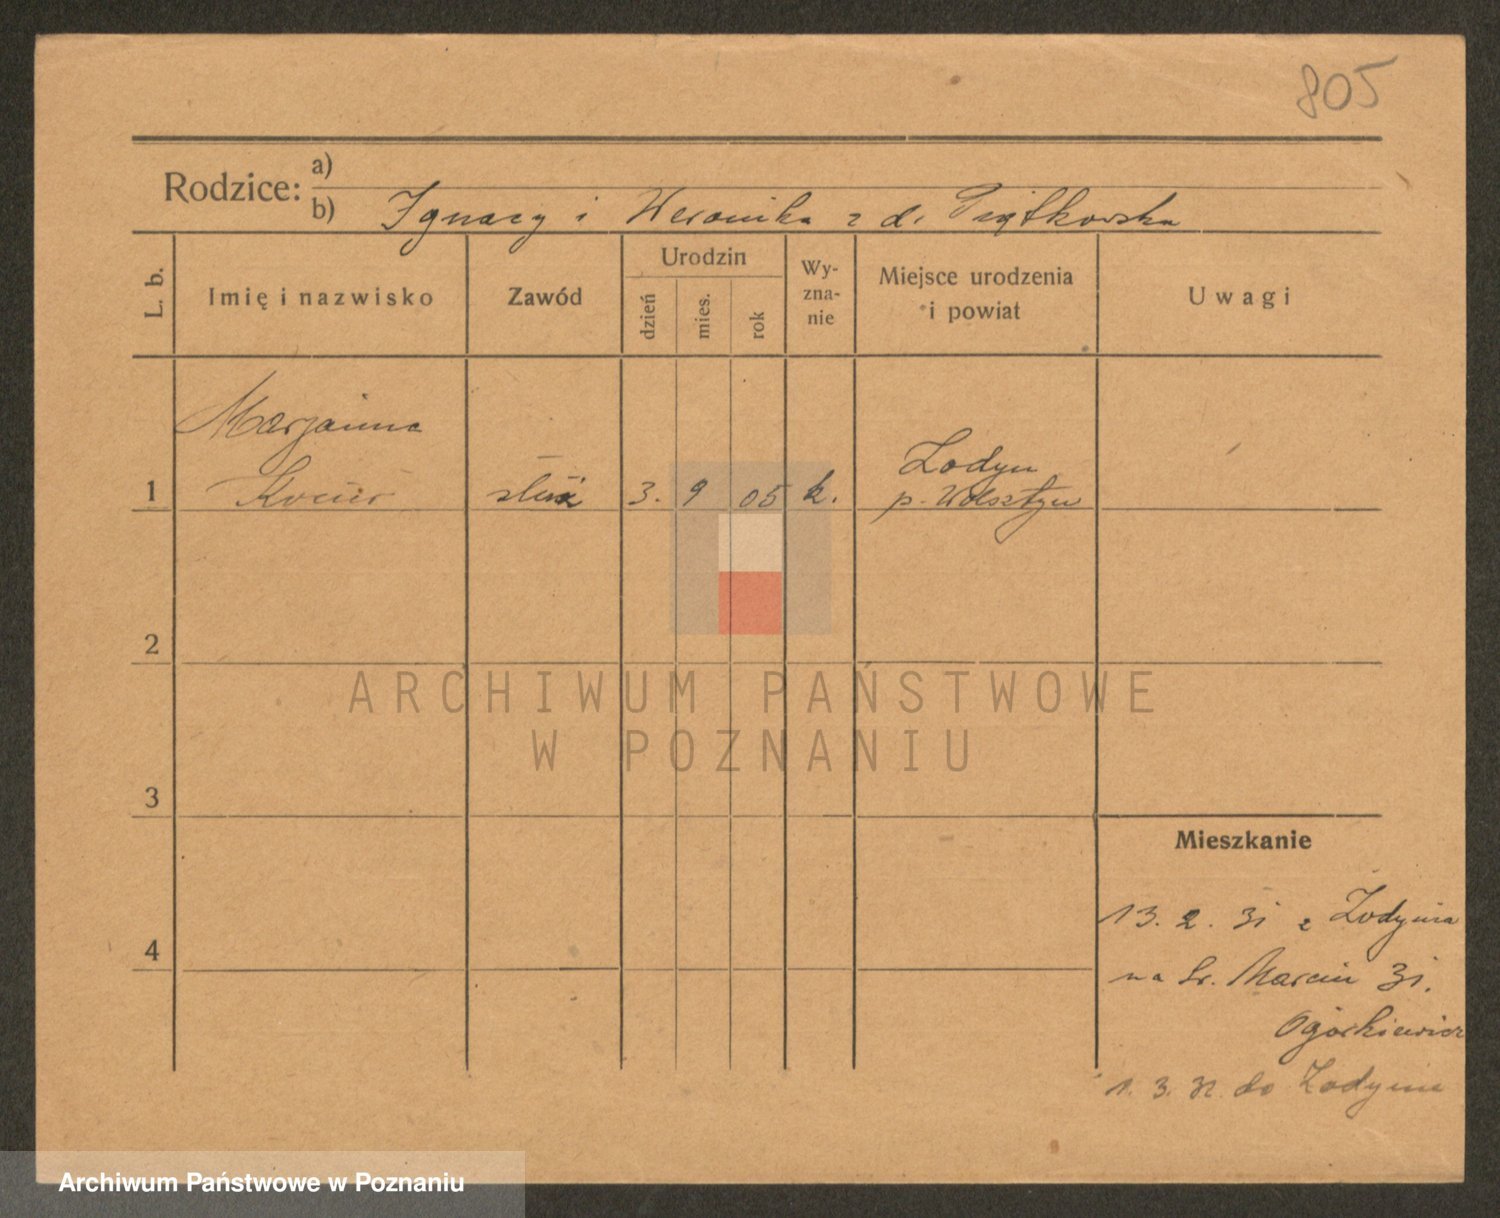 805
Rodzice:
a)
b) Ignacy i Weronika z d. Piątkowska
L. b.
Imię i nazwisko
Zawód
Urodzin
dzień
mies.
rok
Wy-
zna-
nie
Miejsce urodzenia
i powiat
Uwagi
Marjanna
1
służ
3. 9 05 k.
Łodyn
p. Wolsztyn
2
3
4
Mieszkanie
13. 2. 31 z Łodynia
na Św. Marcin 31.
Ogórkiewicz
1. 3. 32. do Łodynia
ARCHIWUM PAŃSTWOWE
W POZNANIU
Archiwum Państwowe w Poznaniu